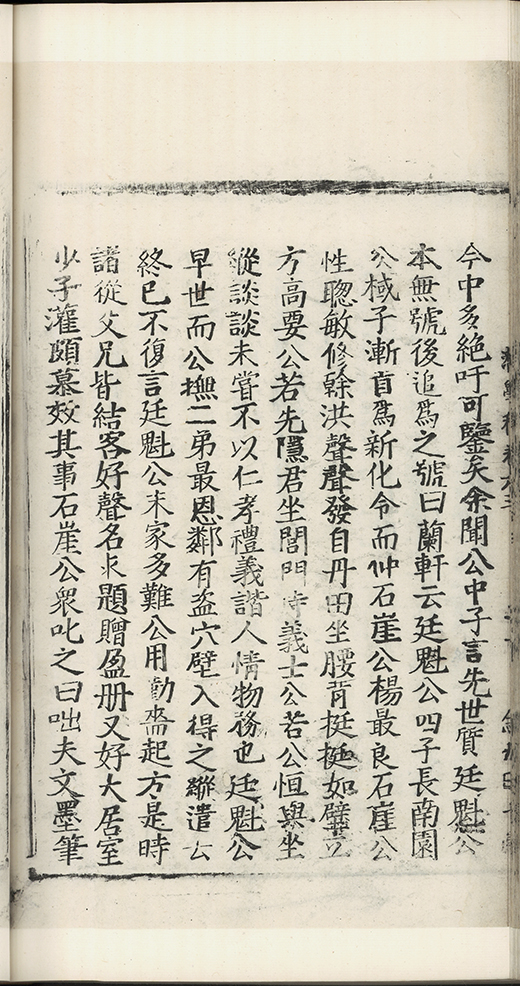 今中多絶吁可鑒矣余聞公中子言先世質廷魁公
本無號後追爲之號曰蘭軒云廷魁公四子長南園
公棫子漸肓爲新化令而仲石崖公楊最良石崖公
性聰敏修榦洪聲聲發自丹田坐腰背挺挺如壁立
方高要公若先隱君坐閭門時義士公若公恒與坐
縱談談未嘗不以仁孝禮義諧人情物務也廷魁公
早世而公撫二弟最恩鄰有盗穴壁入得之縱遣去
終已不復言廷魁公末家多難公用勤嗇起方是時
諸從父兄皆結客好聲名求題贈盈册又好大居室
少子灌頗慕效其事石崖公衆叱之曰咄夫文墨筆